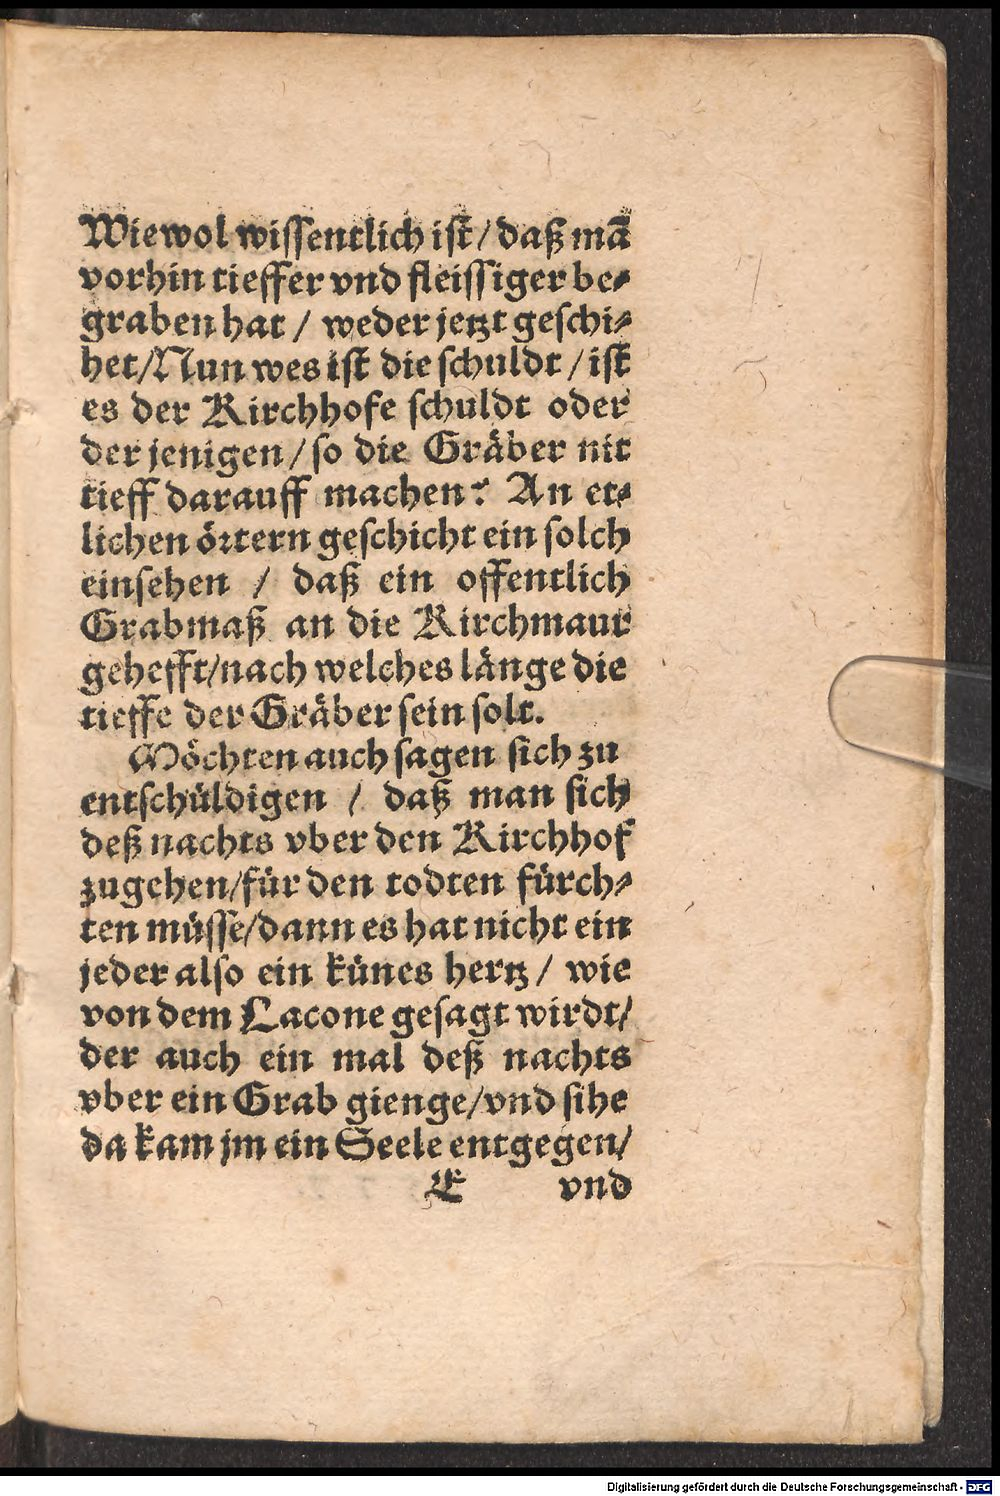 Wiewol wissentlich ist / daß mā
vorhin tieffer vnd fleissiger be⸗
graben hat / weder jetzt geschi⸗
het / Nun wes ist die schuldt / ist
es der Kirchhofe schuldt oder
der jenigen / so die Gräber nit
tieff darauff machen? An et⸗
lichen örtern geschicht ein solch
einsehen / daß ein offentlich
Grabmaß an die Kirchmaur
gehefft / nach welches länge die
tieffe der Gräber sein solt.
Möchten auch sagen sich zu
entschüldigen / daß man sich
deß nachts vber den Kirchhof
zugehen / für den todten fürch⸗
ten müsse / dann es hat nicht ein
jeder also ein künes hertz / wie
von dem Lacone gesagt wirdt /
der auch ein mal deß nachts
vber ein Grab gienge / vnd sihe
da kam jm ein Seele entgegen /
C vnd
Digitalisierung gefördert durch die Deutsche Forschungsgemeinschaft - DFG